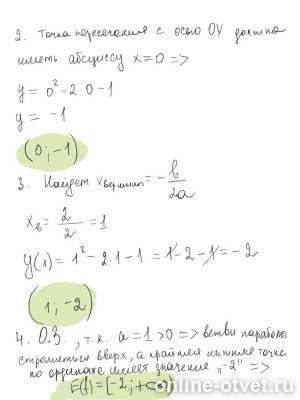 2. Точка пересечения с осью OY должна
иметь абсциссу x=0 =>
y = 0² - 2·0 - 1
y = -1
(0; -1)
3. Найдем xвершины = - b/2a
xв = 2/2 = 1
y(1) = 1² - 2·1 - 1 = 1 - 2 - 1 = -2
(1; -2)
4. О.З., т.к. a = 1 > 0 => ветви параболы
стремиться вверх, а крайняя нижняя точка
по ординате имеет значение „-2" =>
E(f) = [-2; +∞)
online-otvet.ru